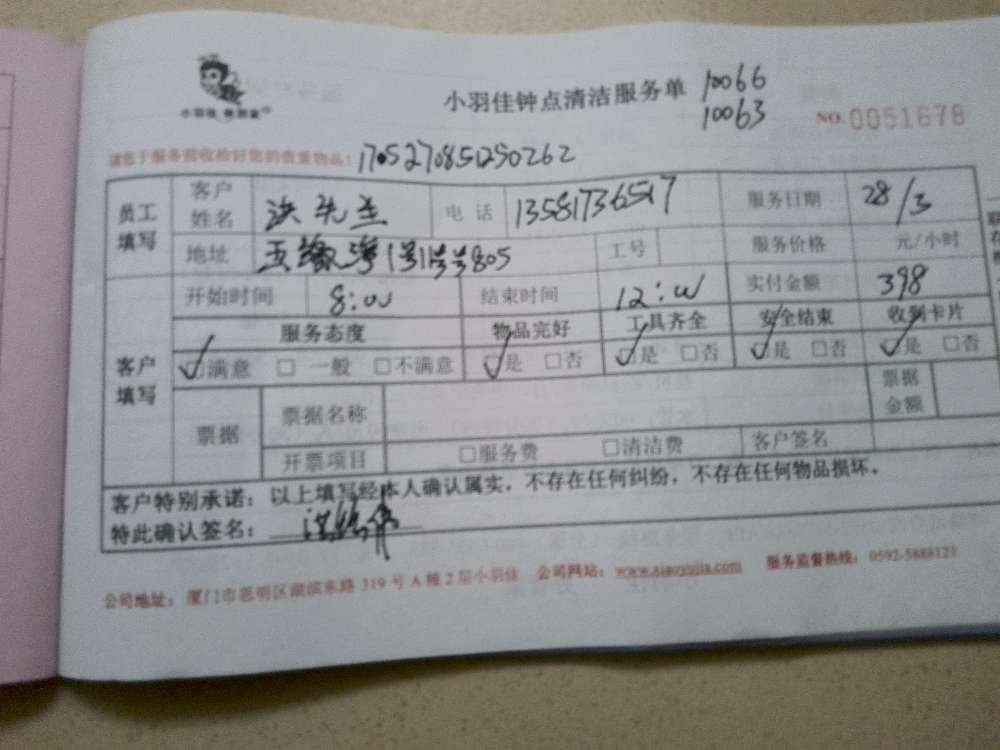 小羽佳 
小羽佳钟点清洁服务单 10066
10063
NO. 0051678
请您于服务前收拾好您的贵重物品！ 1705270851290262
员工填写 客户姓名 洪先生 电话 13581736517 服务日期 28/3
地址 1号 805 工号 服务价格 元/小时
客户填写 开始时间 8:00 结束时间 12:00 实付金额 398
服务态度 物品完好 工具齐全 安全结束 收到卡片
☑满意 □ 一般 □不满意 ☑是 □否 ☑是 □否 ☑是 □否 ☑是 □否
票据 票据名称 票据金额
开票项目 □服务费 □清洁费 客户签名
客户特别承诺：以上填写经本人确认属实，不存在任何纠纷，不存在任何物品损坏。
特此确认签名：
公司地址：厦门市思明区湖滨东路 319 号 A 幢 2 层小羽佳 公司网站：www.xiaoyujia.com 服务监督热线：0592-5888121